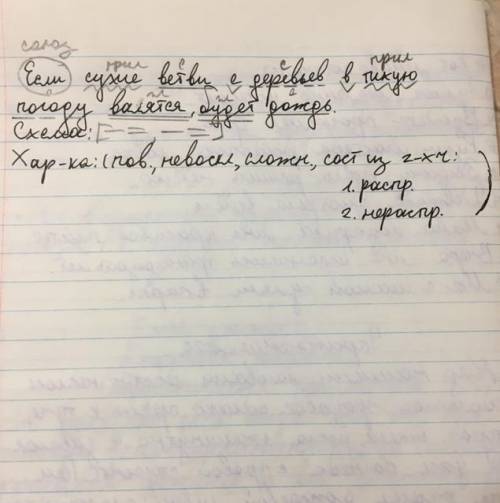 союз
прил с с прил
Если сухие ветви с деревьев в тихую
с гл гл с
погоду валятся, будет дождь.
Схема: [- = = -]
Хар-ка: (пов., невоскл, сложн., сост из 2-х ч:
1. распр.
2. нераспр. )